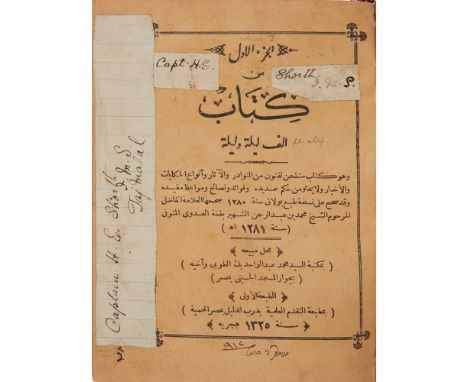 الجزء الاول
من
Capt H.E.
Shortt
I. M. S.
كتاب
الف ليلة وليلة
وهو كتاب متضمن لفنون من النوادر والآثار وأنواع الحكايات
والاخبار ولايخلو من حكم عديده وفوائد ونصائح ومواعظ مفيده
وقد صحح على نسخة طبع بولاق سنة ١٢٨٠ صححها العلامة الفاضل
المرحوم الشيخ محمد بن عبد الرحمن الشهير بقطة العدوى المتوفى
( سنة ١٢٨١ ه )
محل مبيعه
بمكتبة السيد محمد عبد الواحد بك الطوبى وأخيه
( بجوار المسجد الحسينى بمصر )
الطبعة الاولى
( بمطبعة التقدم العلمية بدرب الدليل بمصر المحمية )
سنة ١٣٢٥ هجريه
١٩١٤
Captain H. E. Shortt
I. M. S
Taj mahal